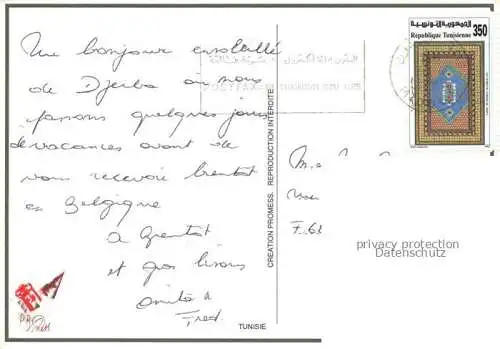 Un bonjour ensoleillé
de Djerba où nous
passons quelques jours
de vacances avant de
vous recevoir bientot
en Belgique
A bientot
et gros bisous
Anita &
Fred
CREATION PROMESS. REPRODUCTION INTERDITE.
TUNISIE
الجمهورية التونسية
République Tunisienne
350
privacy protection
Datenschutz